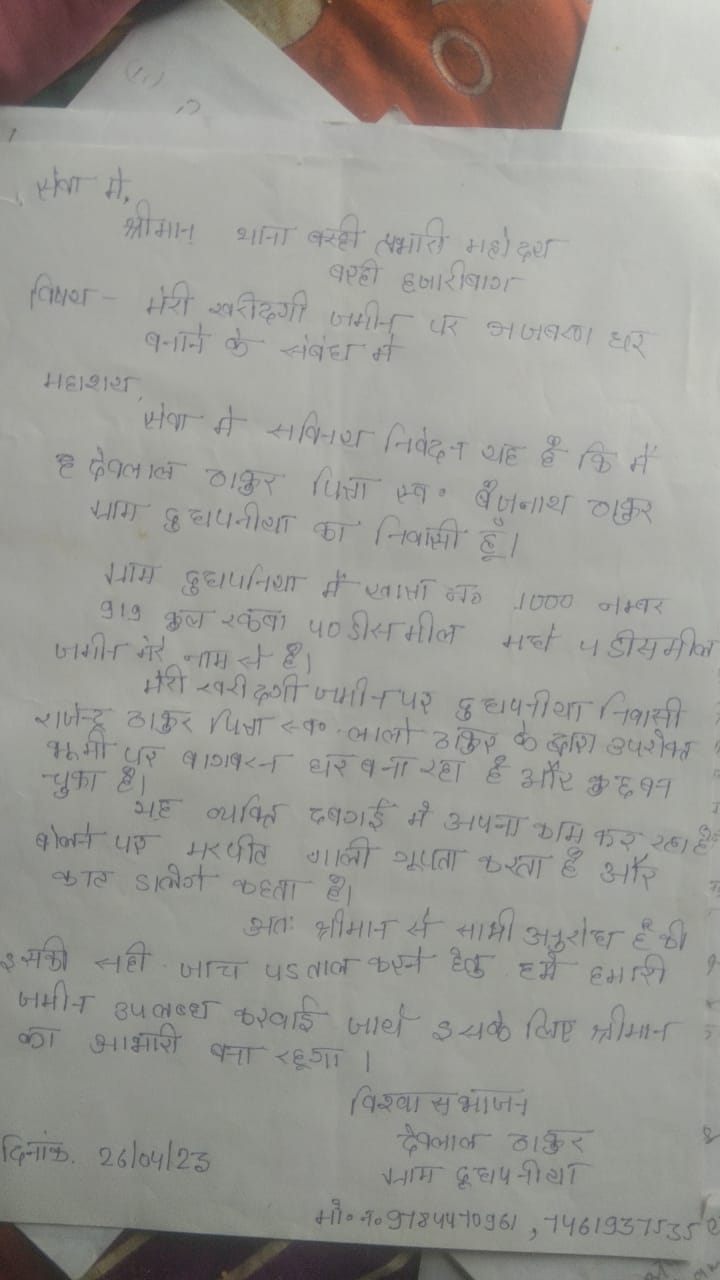 सेवा मे,
श्रीमान थाना बरही प्रभारी महोदय
बरही हजारीबाग
विषय - मेरी खरीदगी जमीन पर जजबरण घर
बनाने के संबंध मे
महाशय,
सेवा मे सविनय निवेदन यह है कि मैं
देवलाल ठाकुर पिता स्व० बैजनाथ ठाकुर
ग्राम दुधपनीया का निवासी हूँ।
ग्राम दुधपनिया में खाता न० 1000 नम्बर
919 कुल रकबा 40 डीसमील मधे 4 डीसमील
जमीन मेरे नाम से है।
मेरी खरीदगी जमीन पर दुधपनीया निवासी
राजेन्द्र ठाकुर पिता स्व० लालो ठाकुर के द्वारा उपरोक्त
भूमी पर घर बना रहा है और कुछ बन
चुका है।
यह व्यक्ति दबगई मे अपना काम कर रहा है
बोलने पर मरपीट गाली गूपता करता है और
काट डालेगे कहता है।
अतः श्रीमान से अनुरोध है की
इसकी सही जाच पड़ताल करने हेतु हमे हमारी
जमीन उपलब्ध करवाई जाये इसके लिए श्रीमान
का आभारी बना रहूगा।
विश्वासभाजन
देवलाल ठाकुर
दिनांक. 26/04/23
ग्राम दूधपनीया
मो० न० 9784470961, 7461937535